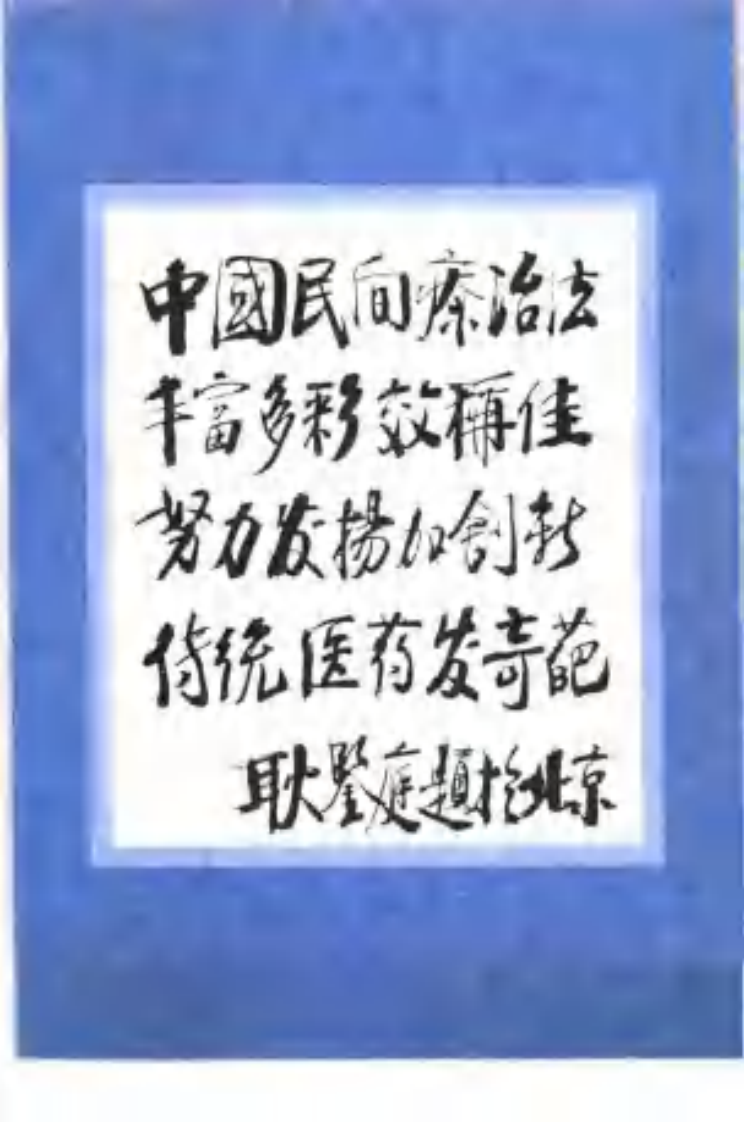 中國民间療治法
丰富多彩效稱佳
努力发揚加創新
传统医药发奇葩
耿鑒庭題於北京